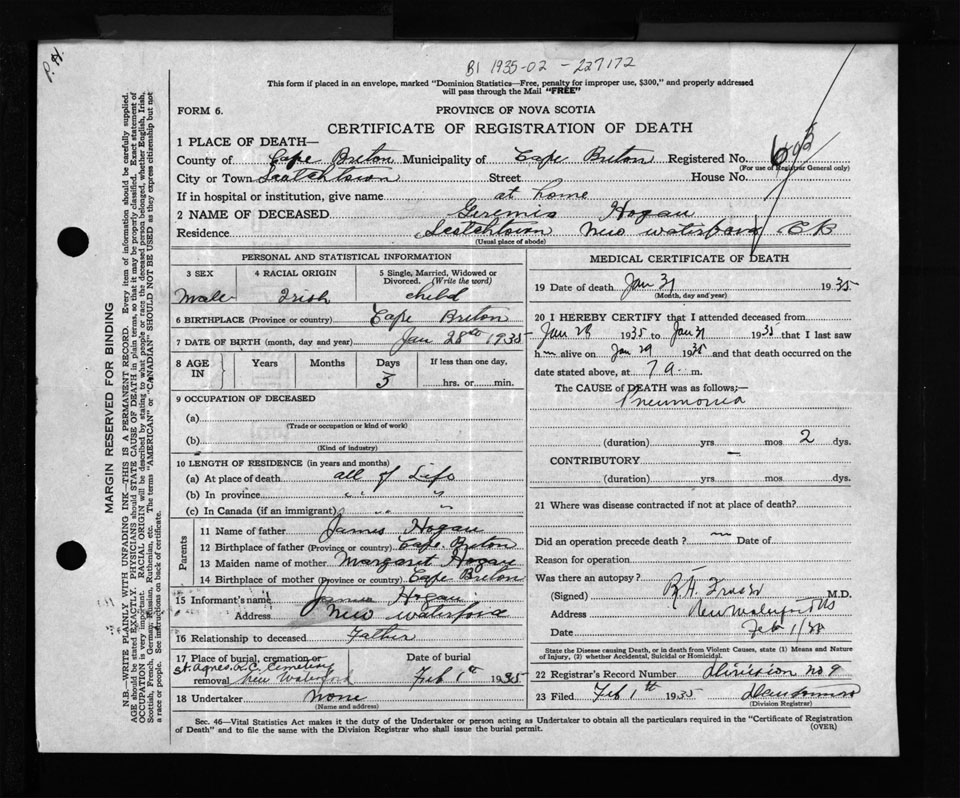 P.H.
B1 1935-02 - 227172
This form if placed in an envelope, marked "Dominion Statistics—Free, penalty for improper use, $300," and properly addressed
will pass through the Mail "FREE"
FORM 6.
PROVINCE OF NOVA SCOTIA
CERTIFICATE OF REGISTRATION OF DEATH
1 PLACE OF DEATH—
County of Cape Breton Municipality of Cape Breton Registered No.
(For use of Registrar General only)
City or Town Scotchtown Street House No.
If in hospital or institution, give name at home
2 NAME OF DECEASED Geremia Hogan
Residence Scotchtown New Waterford CB
(Usual place of abode)
PERSONAL AND STATISTICAL INFORMATION
3 SEX 4 RACIAL ORIGIN 5 Single, Married, Widowed or
Divorced. (Write the word)
Male Irish child
6 BIRTHPLACE (Province or country) Cape Breton
7 DATE OF BIRTH (month, day and year) Jan 28th 1935
8 AGE IN Years Months Days If less than one day,
3 hrs. or min.
9 OCCUPATION OF DECEASED
(a)
(Trade or occupation or kind of work)
(b)
(Kind of industry)
10 LENGTH OF RESIDENCE (in years and months)
(a) At place of death all of Life
(b) In province " "
(c) In Canada (if an immigrant) " "
Parents
11 Name of father James Hogan
12 Birthplace of father (Province or country) Cape Breton
13 Maiden name of mother Margaret Hogan
14 Birthplace of mother (Province or country) Cape Breton
15 Informant's name James Hogan
Address New Waterford
16 Relationship to deceased Father
17 Place of burial, cremation or Date of burial
St. Agnes R.C. Cemetery
removal New Waterford Feb 1st 1935
18 Undertaker None
(Name and address)
MEDICAL CERTIFICATE OF DEATH
19 Date of death Jan 31 1935
(Month, day and year)
20 I HEREBY CERTIFY that I attended deceased from
Jan 28 1935 to Jan 31 1935 that I last saw
h m alive on Jan 29 1935 and that death occurred on the
date stated above, at 7 a. m.
The CAUSE of DEATH was as follows;—
Pneumonia
(duration) yrs mos 2 dys.
CONTRIBUTORY —
(duration) yrs mos dys.
21 Where was disease contracted if not at place of death?
Did an operation precede death ? no Date of
Reason for operation
Was there an autopsy?
(Signed) M.D.
Address New Waterford NS
Date Feb 1/35
State the Disease causing Death, or in death from Violent Causes, state (1) Means and Nature
of Injury, (2) whether Accidental, Suicidal or Homicidal.
22 Registrar's Record Number division no 9
23 Filed Feb 1th 1935
(Division Registrar)
Sec. 46—Vital Statistics Act makes it the duty of the Undertaker or person acting as Undertaker to obtain all the particulars required in the "Certificate of Registration
of Death" and to file the same with the Division Registrar who shall issue the burial permit.
(OVER)
MARGIN RESERVED FOR BINDING
N.B.—WRITE PLAINLY WITH UNFADING INK—THIS IS A PERMANENT RECORD. Every item of information should be carefully supplied.
AGE should be stated EXACTLY. PHYSICIANS should STATE CAUSE OF DEATH in plain terms, so that it may be properly classified. Exact statement of
OCCUPATION is very important. RACIAL ORIGIN will be described by stating to what people or race the deceased person belonged, whether English, Irish,
Scottish, French, German, Russian, Ruthenian, etc. The terms "AMERICAN" or "CANADIAN" SHOULD NOT BE USED as they express citizenship but not
a race or people. See instructions on back of certificate.